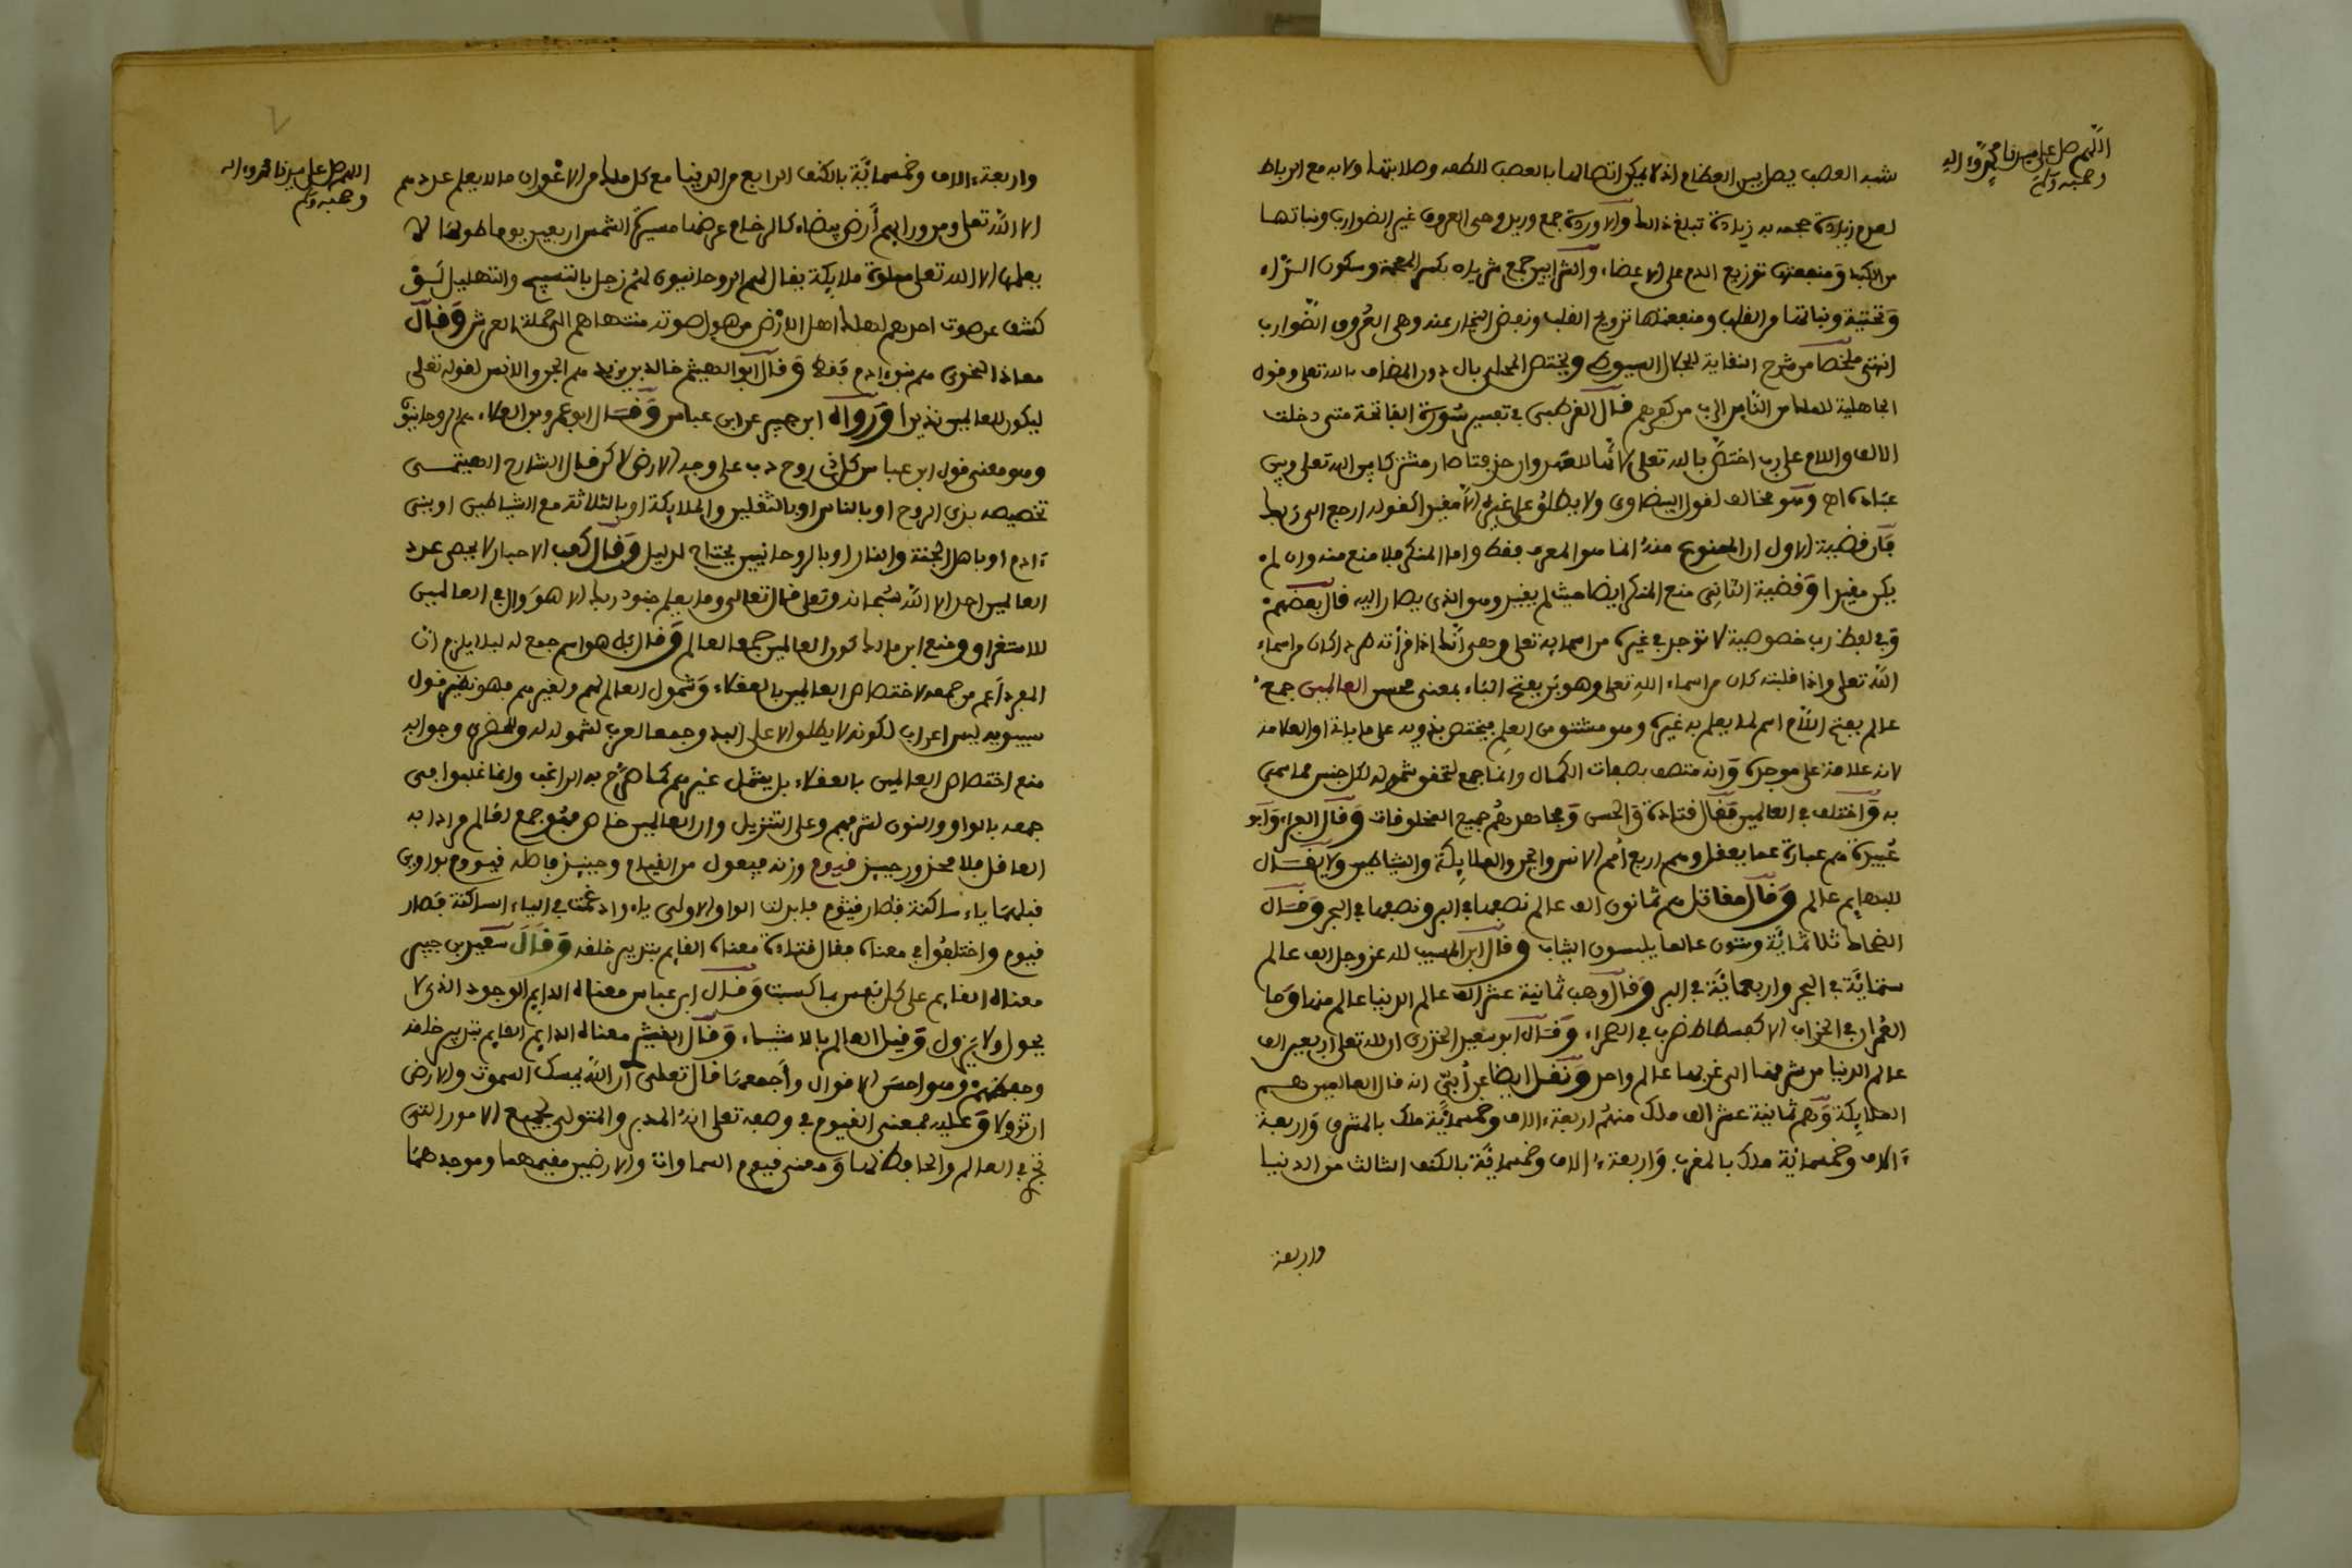 اللهم صل على سيدنا محمد وءاله
وصحبه وسلم
شبه العصب يصل بين العظام اذ لا يمكن اتصالها بالعصب للطفه وصلابتها ولابد مع الرباط
لعدم زيادة حجمه به زيادة تبلغ ذالك والاوردة جمع وريد وهى العروق غير الضوارب ونباتها
من الكبد ومنفعتها توزيع الدم على الاعضاء والشرايين جمع شريان بكسر المعجمة وسكون الراء
وتحتية ونباتها من القلب ومنفعتها ترويح القلب ونفض البخار عنه وهى العروق الضوارب
انتهى ملخصا من شرح النقاية للجلال السيوطى ويختص المحلى بال دون المضاف بالله تعلى وقول
الجاهلية للملك من الناس الرب من كفرهم قال القرطبى فى تفسير سورة الفاتحة متى دخلت
الالف واللام على رب اختص بالله تعلى لانها للعهد وان حذفتا صار مشتركا بين الله تعلى وبين
عباده اه وهو مخالف لقول البيضاوى ولا يطلق على غيره الا مقيدا كقوله ارجع الى ربك
فان قضية الاول ان الممنوع منه انما هو المعرف فقط واما المنكر فلا منع منه وان لم
يكن مقيدا وقضية الثانى منع المنكر ايضا حيث لم يقيد وهو الذى يصار اليه قال بعضهم
وفى لفظ رب خصوصية لا توجد فى غيره من اسمايه تعلى وهى انك اذا قرأته طردا كان من اسماء
الله تعلى واذا قلبته كان من اسماء الله تعلى وهو بر بفتح الباء بمعنى محسن العالمين جمع
عالم بفتح اللام اسم لما يعلم به غيره وهو مشتق من العلم فيختص بذويه على ما ياتى او العلامة
لانه علامة على موجده وانه متصف بصفات الكمال وانما جمع لتحقق شموله لكل جنس مما سمى
به واختلف فى العالمين فقال قتادة والحسن ومجاهد هم جميع المخلوقات وقال الفراء وابو
عبيدة هم عبارة عما يعقل وهم اربع أمم الانس والجن والملايكة والشياطين ولا يقال
للبهايم عالم وقال مقاتل هم ثمانون الف عالم نصفها فى البر ونصفها فى البحر وقال
الضحاك ثلاثمائة وستون عالما يلبسون الثياب وقال ابن المسيب لله عز وجل الف عالم
ستمائة فى البحر واربعمائة فى البر وقال وهب ثمانية عشر الف عالم الدنيا عالم منها وما
العمران فى الخراب الا كفسطاط ضرب فى الصحراء وقال ابو سعيد الخدرى ان لله تعلى اربعين الف
عالم الدنيا من شرقها الى غربها عالم واحد ونقل ايضا عن أبى انه قال العالمين هم
الملايكة وهم ثمانية عشر الف ملك منهم اربعة ءالاف وخمسمائة ملك بالمشرق واربعة
ءالاف وخمسمائة ملك بالمغرب واربعة ءالاف وخمسمائة بالكنف الثالث من الدنيا
واربعة
اللهم صل على سيدنا محمد وءاله
وصحبه وسلم
واربعة ءالاف وخمسمائة بالكنف الرابع من الدنيا مع كل ملك من الاعوان ما لا يعلم عددهم
الا الله تعلى ومن ورايهم أرض بيضاء كالرخام عرضها مسيرة الشمس اربعين يوما طولها لا
يعلمه الا الله تعلى مملوة ملايكة يقال لهم الروحانيون لهم زجل بالتسبيح والتهليل لو
كشف عن صوت احدهم لهلك اهل الارض من هول صوته منتهاهم الى حملة العرش وقال
معاذ النحوى هم بنو ءادم فقط وقال ابو الهيثم خالد بن يزيد هم الجن والانس لقوله تعلى
ليكون للعالمين نذيرا ورواه ابن جبير عن ابن عباس وقال ابو عمرو بن العلاء هم الروحانيون
وهو معنى قول ابن عباس كل ذى روح دب على وجه الارض لاكن قال الشارح الهيتمى
تخصيصه بذى الروح او بالناس او بالثقلين والملايكة او بالثلاثة مع الشياطين او ببنى
ءادم او باهل الجنة والنار او بالروحانيين يحتاج لدليل وقال كعب الاحبار لا يحصى عدد
العالمين احد الا الله سبحانه وتعلى قال تعالى وما يعلم جنود ربك الا هو وال فى العالمين
للاستغراق ومنع ابن مالك كون العالمين جمعا لعالم وقال بل هو اسم جمع له ليلا يلزم ان
المفرد أعم من جمعه لاختصاص العالمين بالعقلاء وشمول العالم لهم ولغيرهم فهو نظير قول
سيبويه ليس اعراب لكونه لا يطلق الا على البدو جمعا لعرب لشموله له وللحضرى وجوابه
منع اختصاص العالمين بالعقلاء بل يشمل غيرهم كما صرح به الراغب وانما غلبوا فى
جمعه بالواو والنون لشرفهم وعلى التنزيل وان العالمين خاص فهو جمع لعالم مرادا به
العاقل فلا محذور حينئذ قيوم وزنه فيعول من القيام وحينئذ فاصله قيووم بواوين
قبلهما ياء ساكنة فصار قيوم فابدلت الواو الاولى ياء وادغمت فى الياء الساكنة فصار
قيوم واختلفوا فى معناه فقال قتادة معناه القايم بتدبير خلقه وقال سعيد بن جبير
معناه القايم على كل نفس بما كسبت وقال ابن عباس معناه الدايم الوجود الذى لا
يحول ولا يزول وقيل العالم بالاشياء وقال الخفش معناه الدايم القايم بتدبير خلقه
وحفظهم وهو احسن الاقوال وأجمعها قال تعلى ان الله يمسك السموت والارض
ان تزولا وعليه فمعنى القيوم فى وصفه تعلى انه المدبر والمتولى لجميع الامور التى
تجرى فى العالم والحافظ لها ومعنى قيوم السماوات والارضين مقيمهما وموجدهما